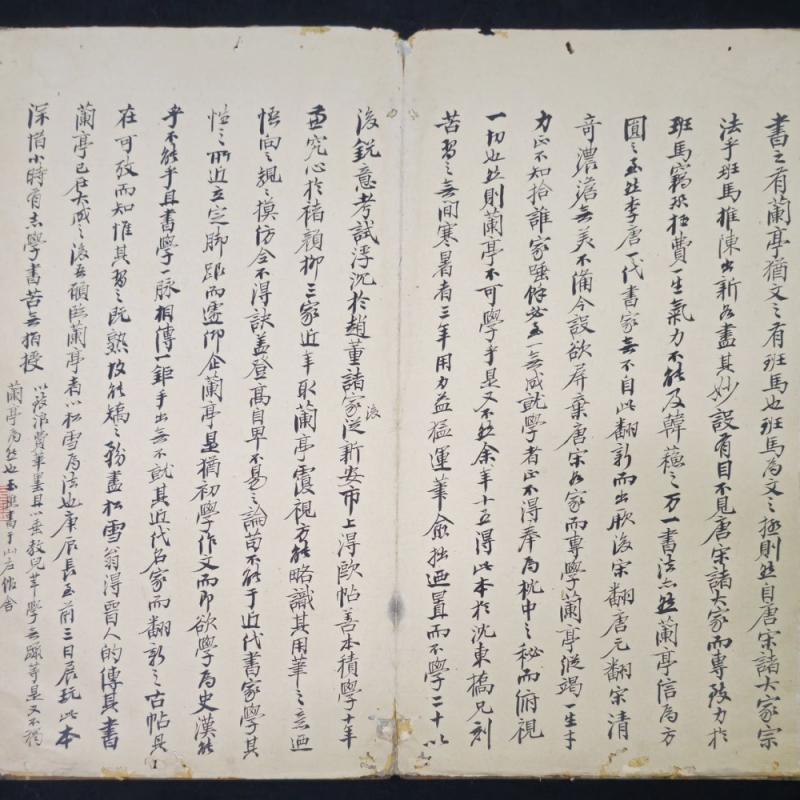 書之有蘭亭猶文之有班馬也班馬為文之極則然自唐宋諸大家宗
法乎班馬推陳出新各盡其妙設有目不見唐宋諸大家而專致力於
班馬竊恐枉費一生氣力不能及韓蘇之万一書法亦然蘭亭信為方
圓之至然李唐一代書家無不自此翻新而出厥後宋翻唐元翻宋清
奇濃澹無美不備今設欲屏棄唐宋各家而專學蘭亭縱竭一生才
力正不知拾誰家唾餘必至一無成就學者正不得奉為枕中之秘而俯視
一切也然則蘭亭不可學乎是又不然余年十五得此本於沈東橋兄刻
苦習之無間寒暑者三年用力益猛運筆愈拙迺置而不學二十以
後銳意考試浮沉於趙董諸家後從新安市上得歐帖善本積學十年
並究心於褚顏柳三家近年取蘭亭覆視方能略識其用筆之意迺
悟向之規之摸仿全不得訣蓋登高自卑不易之論苟不能于近代書家學其
性之所近立定脚跟而遽仰企蘭亭是猶初學作文而即欲學為史漢能
乎不能乎且書學一脉相傳一鉅手出無不就其近代名家而翻新之古帖具
在可攷而知惟其習之既熟故能矯之務盡松雪翁得晉人的傳其書
蘭亭已在大成之後吾願臨蘭亭者以松雪為法也庚辰長至前三日展玩此本
深惜小時有志學書苦無指授
以致浪費筆墨且以垂教兒輩學無躐等是又不獨
蘭亭為然也 書于山石僊舍